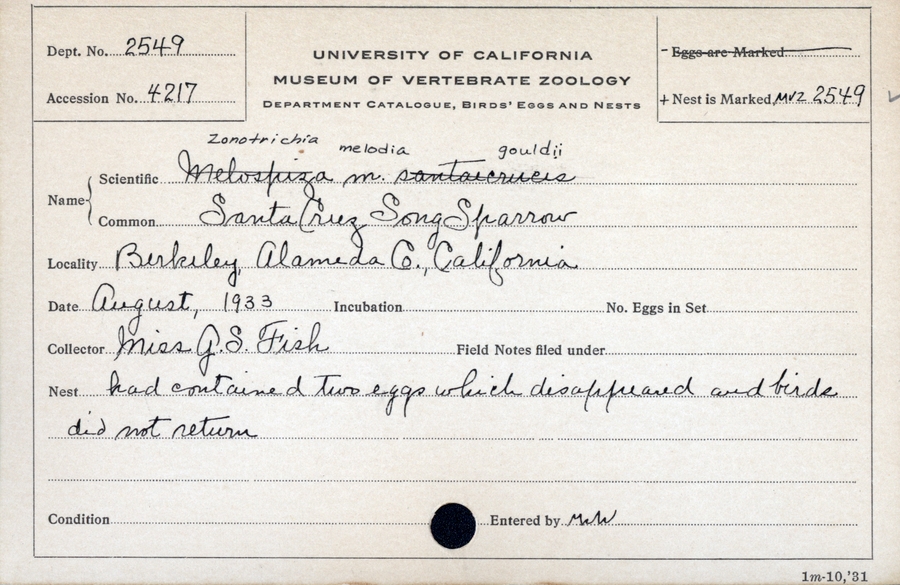 Dept. No. 2549
Accession No. 4217
UNIVERSITY OF CALIFORNIA
MUSEUM OF VERTEBRATE ZOOLOGY
DEPARTMENT CATALOGUE, BIRDS' EGGS AND NESTS
- Eggs are Marked
+ Nest is Marked, MVZ 2549 ✓
Zonotrichia melodia gouldii
Name { Scientific Melospiza m. santaecrucis
Common Santa Cruz Song Sparrow
Locality Berkeley, Alameda Co., California
Date August, 1933 Incubation No. Eggs in Set
Collector Miss G.S. Fish Field Notes filed under
Nest had contained two eggs which disappeared and birds
did not return
Condition Entered by
1m-10,'31